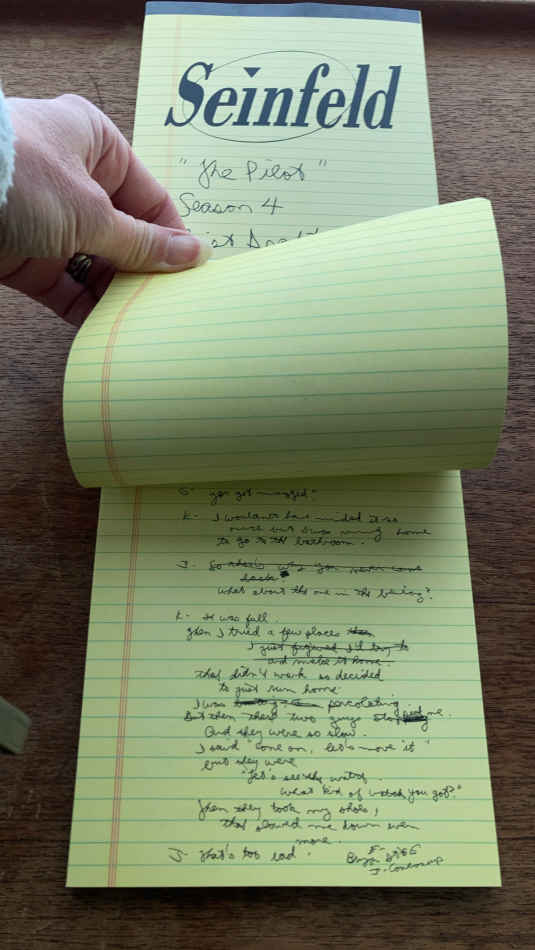 Seinfeld
"The Pilot"
Season 4
First Draft
G- you got mugged?
K- I wouldn't have minded it so
much but I was running home
to go to the bathroom.
J. So that's why you never came
back?
What about the one in the building?
K- It was full.
Then I tried a few places then
I just figured I'd try to
and make it home.
That didn't work so decided
to just run home
I was percolating.
But then these two guys stopped me.
And they were so slow.
I said "Come on, let's move it"
but they were
"Let's see the watch.
What kind of watch you got?"
Then they took my shoes,
that slowed me down even
more.
J- That's too bad.
E-
J-